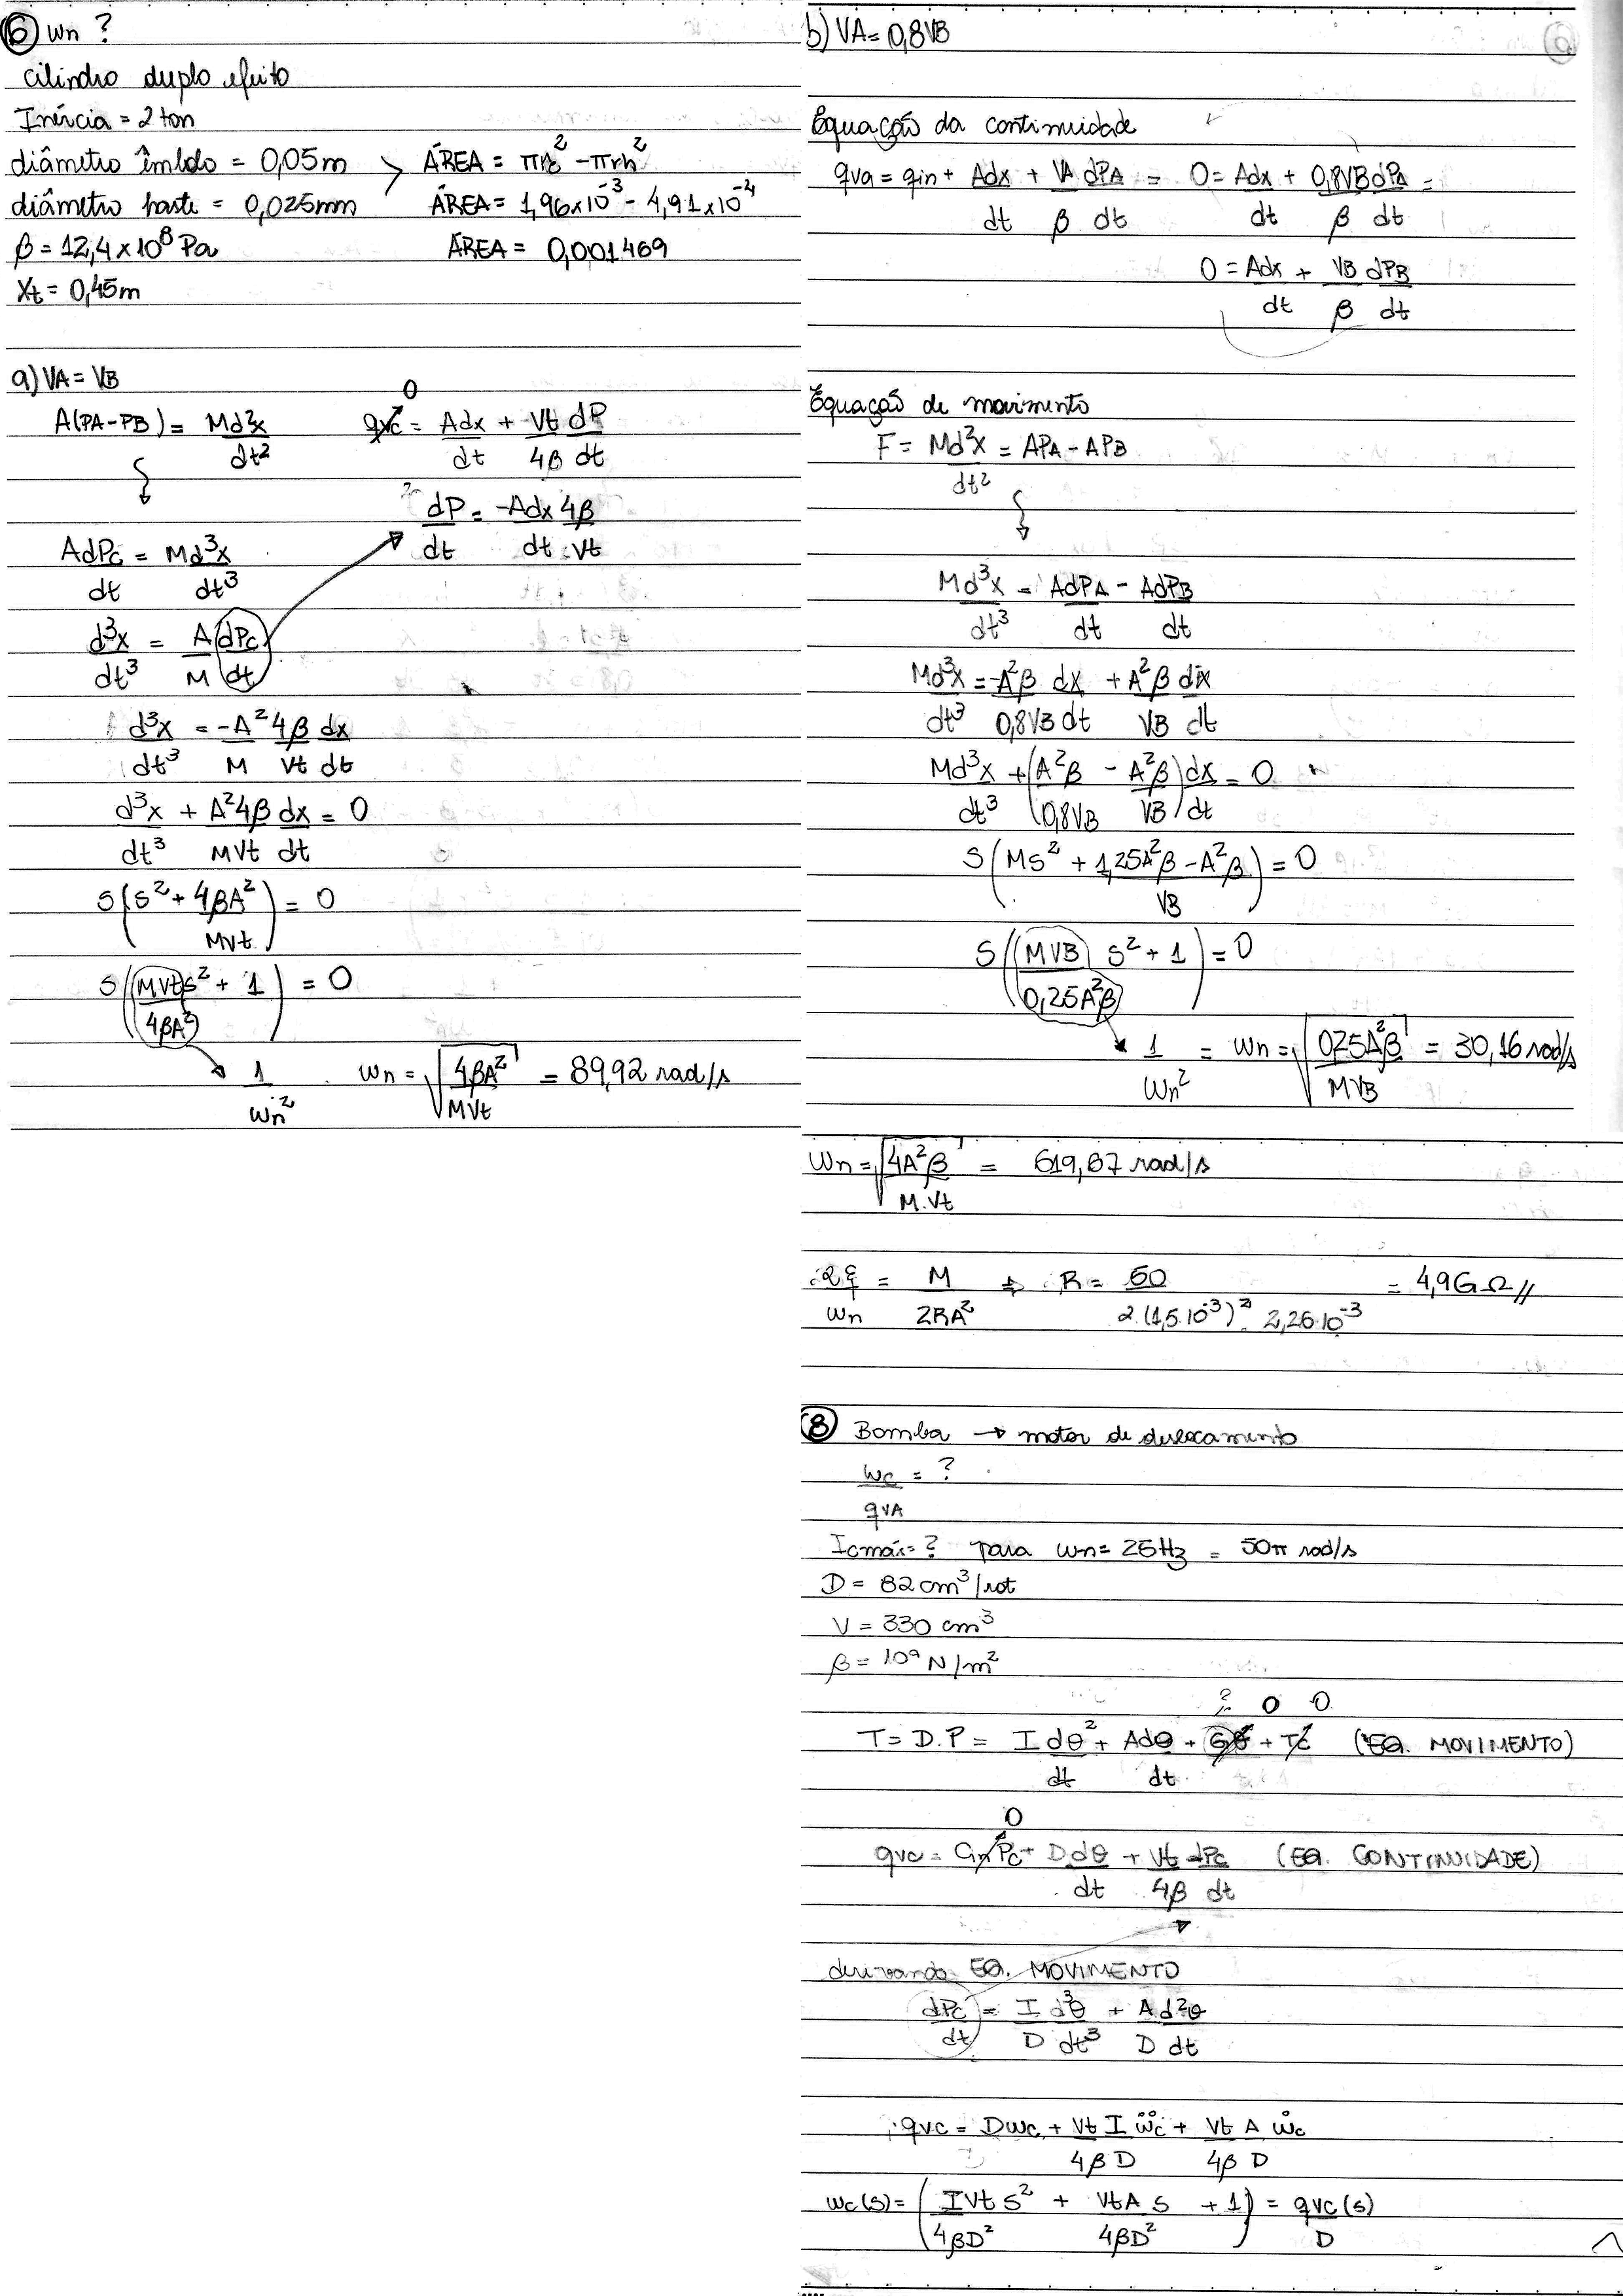 ⑥ Wn ?
cilindro duplo efeito
Inércia = 2 ton
diâmetro êmbolo = 0,05m > ÁREA = πrê² - πrh²
diâmetro haste = 0,025mm ÁREA = 1,96x10⁻³ - 4,91x10⁻⁴
β = 12,4 x 10⁸ Pa ÁREA = 0,001469
Xt = 0,45m
a) VA = VB
A(PA-PB) = Md²x/dt² qvc⁰ = Adx/dt + Vt/4β dP/dt
dP/dt = -Adx/dt 4β/Vt
AdPc/dt = Md³x/dt³
d³x/dt³ = A/M (dPc/dt)
d³x/dt³ = -A²/M 4β/Vt dx/dt
d³x/dt³ + A²4β/MVt dx/dt = 0
S(S² + 4βA²/MVt) = 0
S((MVt/4βA²)S² + 1) = 0
1/Wn² Wn = √(4βA²/MVt) = 89,92 rad/s
b) VA = 0,8VB
Equação da continuidade
qva = qin + Adx/dt + VA/β dPA/dt = 0 = Adx/dt + 0,8VB/β dPA/dt =
0 = Adx/dt + VB/β dPB/dt
Equação de movimento
F = Md²x/dt² = APA - APB
Md³x/dt³ = AdPA/dt - AdPB/dt
Md³x/dt³ = -A²β/0,8VB dx/dt + A²β/VB dx/dt
Md³x/dt³ + (A²β/0,8VB - A²β/VB) dx/dt = 0
S(MS² + 1,25A²β - A²β/VB) = 0
S((MVB/0,25A²β) S² + 1) = 0
1/Wn² = Wn = √(025A²β/MVB) = 30,16 rad/s
Wn = √(4A²β/M.Vt) = 619,67 rad/s
2ξ/Wn = M/2RA² → R = 50/2.(1,5.10⁻³)². 2,26.10⁻³ = 4,9GΩ//
⑧ Bomba → motor de deslocamento
Wc/qVA = ?
Icmáx = ? para wn = 25Hz = 50π rad/s
D = 82 cm³/rot
V = 330 cm³
β = 10⁹ N/m²
? 0 0
T = D.P = I dθ²/dt + Adθ/dt + Gθ + Tc (EQ. MOVIMENTO)
0
qvc = Cin Pc + D dθ/dt + Vt/4β dPc/dt (EQ. CONTINUIDADE)
derivando EQ. MOVIMENTO
dPc/dt = I/D d³θ/dt³ + A/D d²θ/dt
qvc = Dwc + Vt/4β I/D ẅc + Vt/4β A/D ẇc
Wc(s) = (IVt/4βD² S² + VtA/4βD² S + 1) = qvc(s)/D